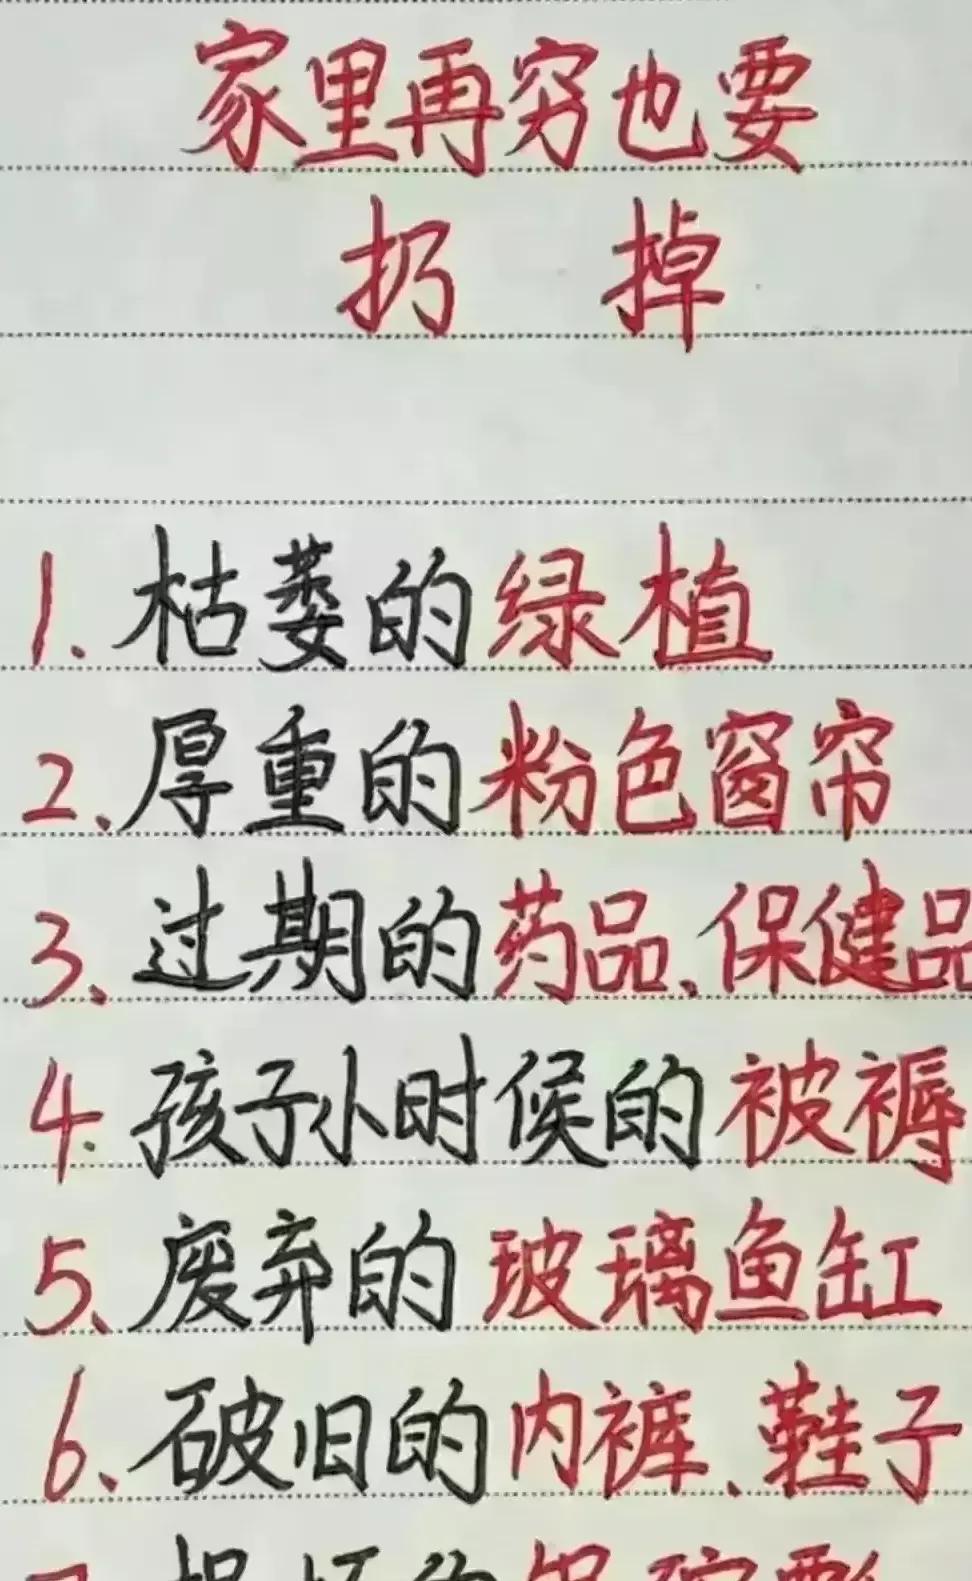 家里再穷也要
扔 掉
1.枯萎的绿植
2、厚重的粉色窗帘
3、过期的药品、保健品
4.孩子小时候的被褥
5、废弃的玻璃鱼缸
6、破旧的内裤、鞋子